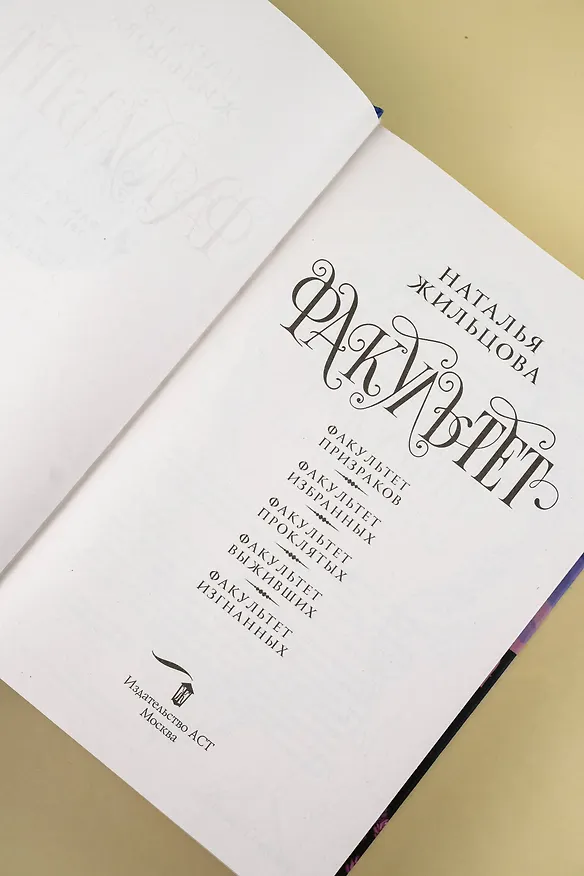 НАТАЛЬЯ
ЖИЛЬЦОВА
ФАКУЛЬТЕТ
ФАКУЛЬТЕТ
ПРИЗРАКОВ
ФАКУЛЬТЕТ
ИЗБРАННЫХ
ФАКУЛЬТЕТ
ПРОКЛЯТЫХ
ФАКУЛЬТЕТ
ВЫЖИВШИХ
ФАКУЛЬТЕТ
ИЗГНАННЫХ
Издательство АСТ
Москва